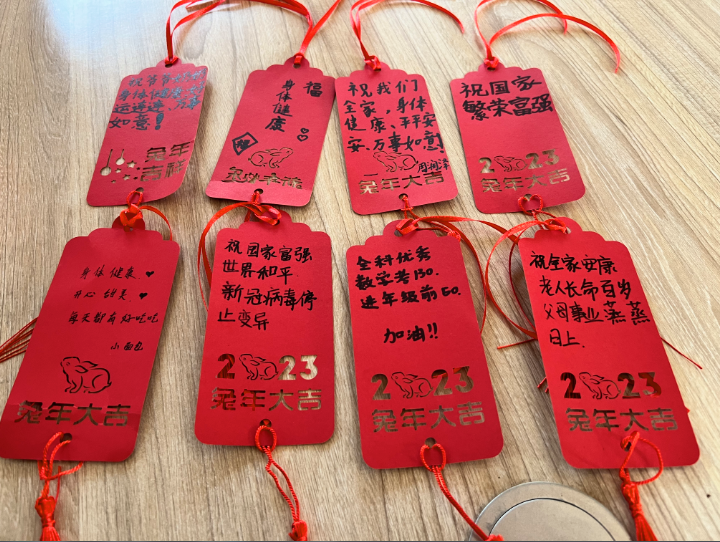 祝爷爷奶奶
身体健康,好
运连连,万事
如意!
兔年
吉祥
福
身体
健康
祝我们
全家,身体
健康,平平安
安,万事如意!
兔年大吉
祝国家
繁荣富强
2023
兔年大吉
身体健康
开心甜美
每天都有好吃吃
兔年大吉
祝国家富强
世界和平
新冠病毒停
止变异
2023
兔年大吉
全科优秀
数学考130.
进年级前50.
加油!!
2023
兔年大吉
祝全家安康
老人长命百岁
父母事业蒸蒸
日上.
2023
兔年大吉